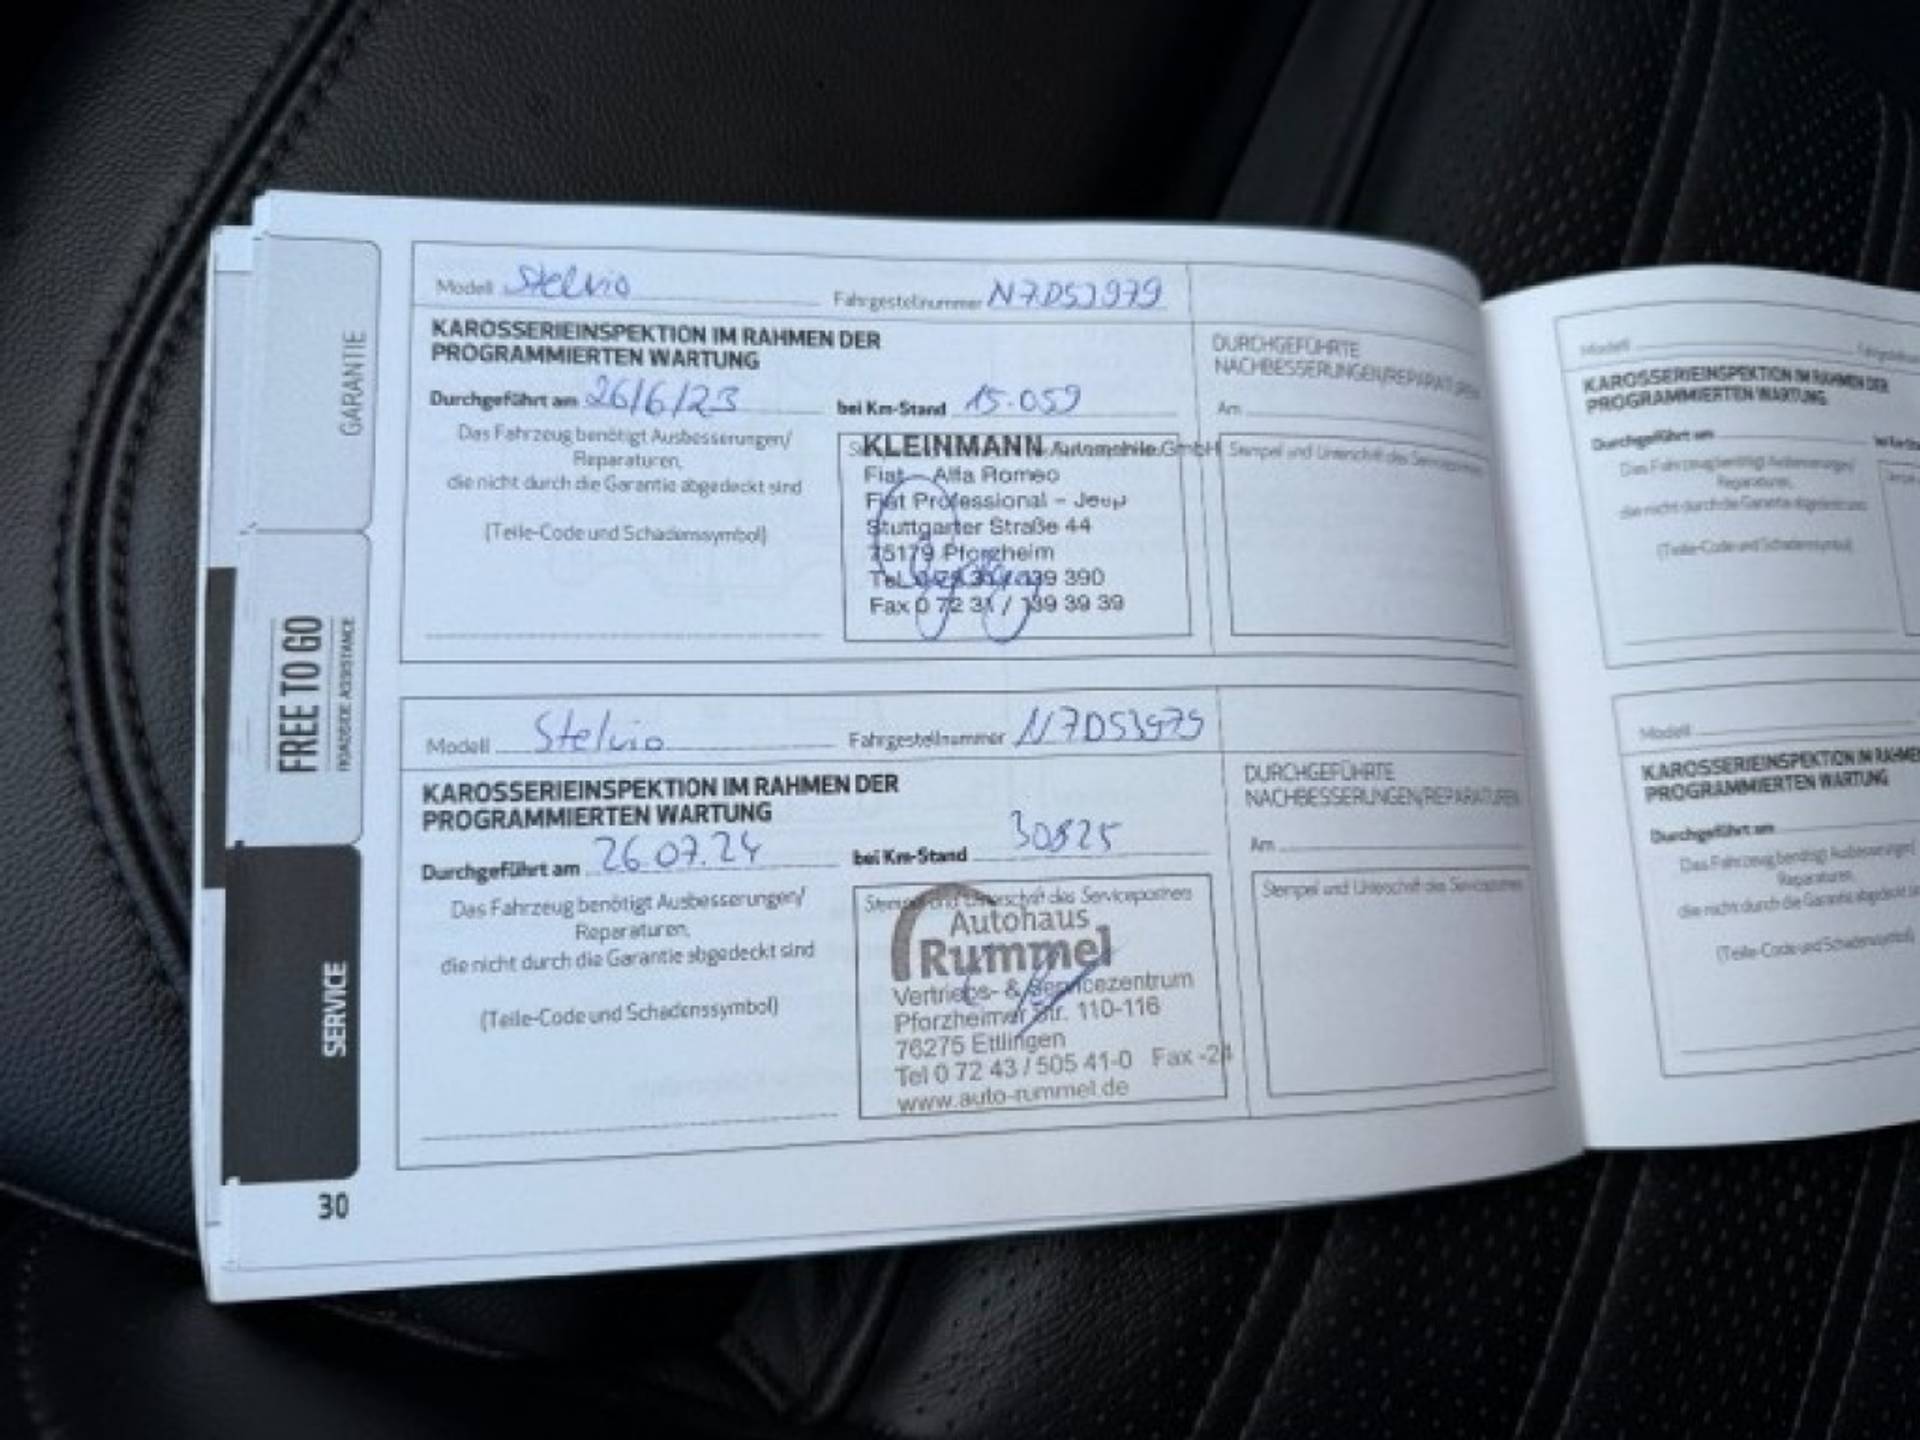 GARANTIE
FREE TO GO
ROADSIDE ASSISTANCE
SERVICE
30
Modell Stelvio Fahrgestellnummer N7D53979
KAROSSERIEINSPEKTION IM RAHMEN DER
PROGRAMMIERTEN WARTUNG
Durchgeführt am 26/6/23 bei Km-Stand 15.059
Das Fahrzeug benötigt Ausbesserungen/
Reparaturen,
die nicht durch die Garantie abgedeckt sind
(Teile-Code und Schadenssymbol)
KLEINMANN Automobile GmbH
Fiat - Alfa Romeo
Fiat Professional - Jeep
Stuttgarter Straße 44
75179 Pforzheim
Tel. 390
Fax 0 72 31 / 139 39 39
DURCHGEFÜHRTE
NACHBESSERUNGEN/REPARATUREN
Am
Stempel und Unterschrift des Servicepartners
Modell Stelvio Fahrgestellnummer N7D53979
KAROSSERIEINSPEKTION IM RAHMEN DER
PROGRAMMIERTEN WARTUNG
Durchgeführt am 26.07.24 bei Km-Stand
Das Fahrzeug benötigt Ausbesserungen/
Reparaturen,
die nicht durch die Garantie abgedeckt sind
(Teile-Code und Schadenssymbol)
Stempel und Unterschrift des Servicepartners
Autohaus
Rummel
Vertriebs- & Servicezentrum
Pforzheimer Str. 110-116
76275 Ettlingen
Tel 0 72 43 / 505 41-0 Fax -24
www.auto-rummel.de
DURCHGEFÜHRTE
NACHBESSERUNGEN/REPARATUREN
Am
Stempel und Unterschrift des Servicepartners
Modell
KAROSSERIEINSPEKTION IM RAHMEN DER
PROGRAMMIERTEN WARTUNG
Durchgeführt am
Das Fahrzeug benötigt Ausbesserungen/
Reparaturen,
die nicht durch die Garantie abgedeckt sind
(Teile-Code und Schadenssymbol)
Modell
KAROSSERIEINSPEKTION IM RAHMEN
PROGRAMMIERTEN WARTUNG
Durchgeführt am
Das Fahrzeug benötigt Ausbesserungen/
Reparaturen,
die nicht durch die Garantie abgedeckt
(Teile-Code und Schadenssymbol)